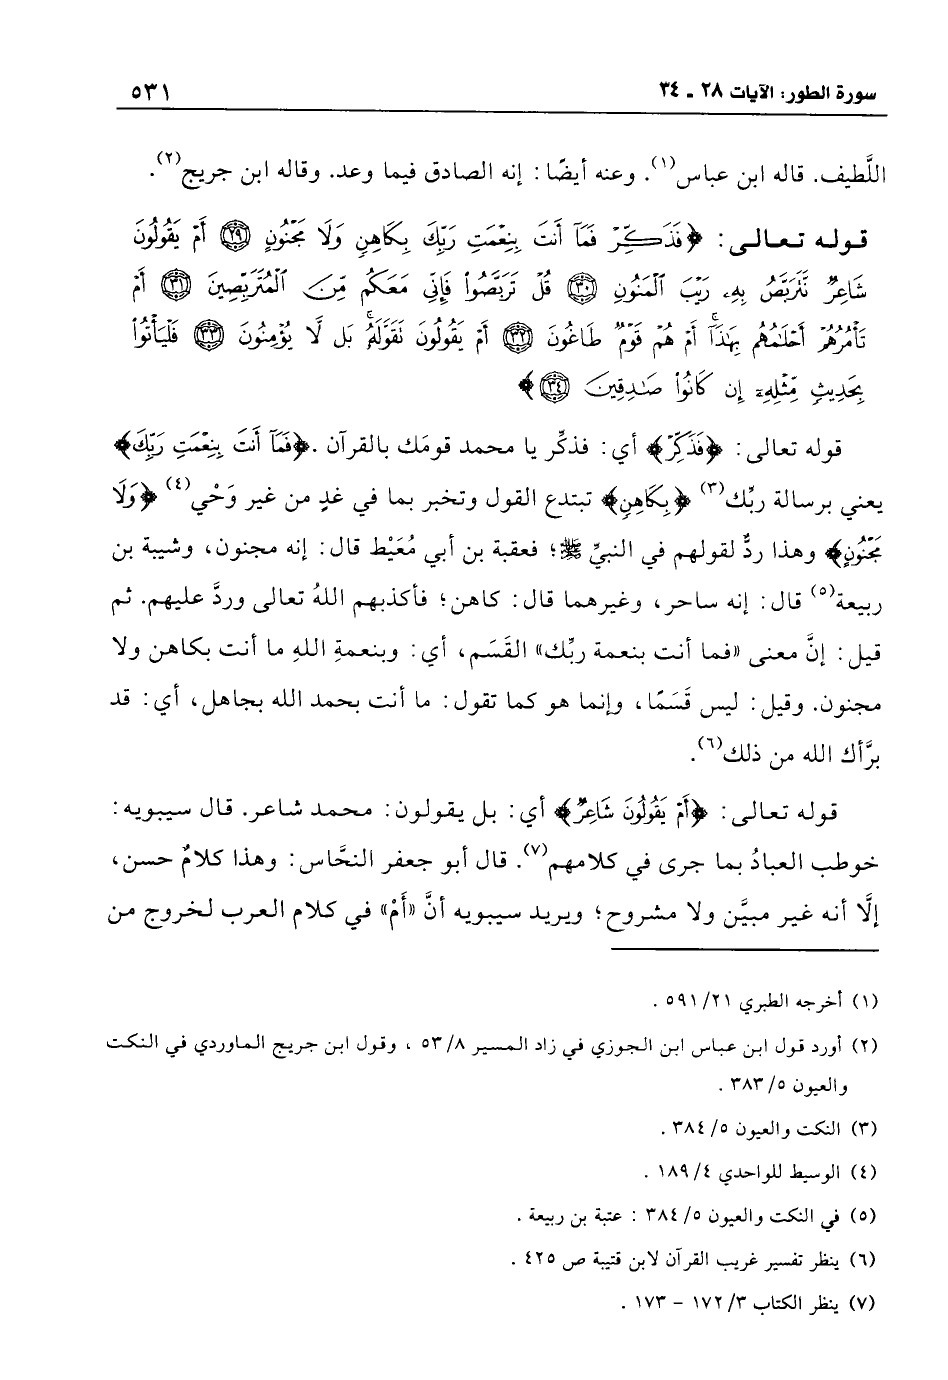 سورة الطور: الآيات ٢٨ ـ ٣٤
٥٣١
اللَّطيف. قاله ابن عباس(١). وعنه أيضًا: إنه الصادق فيما وعد. وقاله ابن جريج(٢).
قوله تعالى: ﴿فَذَكِّرْ فَمَآ أَنتَ بِنِعْمَتِ رَبِّكَ بِكَاهِنٍ وَلَا مَجْنُونٍ ۝٢٩ أَمْ يَقُولُونَ
شَاعِرٌ نَّتَرَبَّصُ بِهِۦ رَيْبَ ٱلْمَنُونِ ۝٣٠ قُلْ تَرَبَّصُوا۟ فَإِنِّى مَعَكُم مِّنَ ٱلْمُتَرَبِّصِينَ ۝٣١ أَمْ
تَأْمُرُهُمْ أَحْلَٰمُهُم بِهَٰذَآ ۚ أَمْ هُمْ قَوْمٌ طَاغُونَ ۝٣٢ أَمْ يَقُولُونَ تَقَوَّلَهُۥ ۚ بَل لَّا يُؤْمِنُونَ ۝٣٣ فَلْيَأْتُوا۟
بِحَدِيثٍ مِّثْلِهِۦٓ إِن كَانُوا۟ صَٰدِقِينَ ۝٣٤﴾
قوله تعالى: ﴿فَذَكِّرْ﴾ أي: فذكِّر يا محمد قومَك بالقرآن. ﴿فَمَآ أَنتَ بِنِعْمَتِ رَبِّكَ﴾
يعني برسالة ربِّك(٣) ﴿بِكَاهِنٍ﴾ تبتدع القول وتخبر بما في غدٍ من غير وَحْي(٤) ﴿وَلَا
مَجْنُونٍ﴾ وهذا ردٌّ لقولهم في النبيِّ ﷺ؛ فعقبة بن أبي مُعَيْط قال: إنه مجنون، وشيبة بن
ربيعة(٥) قال: إنه ساحر، وغيرهما قال: كاهن؛ فأكذبهم اللهُ تعالى وردَّ عليهم. ثم
قيل: إنَّ معنى «فما أنت بنعمة ربِّك» القَسَم، أي: وبنعمةِ اللهِ ما أنت بكاهن ولا
مجنون. وقيل: ليس قَسَمًا، وإنما هو كما تقول: ما أنت بحمد الله بجاهل، أي: قد
برَّأك الله من ذلك(٦).
قوله تعالى: ﴿أَمْ يَقُولُونَ شَاعِرٌ﴾ أي: بل يقولون: محمد شاعر. قال سيبويه:
خوطب العبادُ بما جرى في كلامهم(٧). قال أبو جعفر النحَّاس: وهذا كلامٌ حسن،
إلَّا أنه غير مبيَّن ولا مشروح؛ ويريد سيبويه أنَّ «أَمْ» في كلام العرب لخروج من
(١) أخرجه الطبري ٢١/ ٥٩١ .
(٢) أورد قول ابن عباس ابن الجوزي في زاد المسير ٨/ ٥٣ ، وقول ابن جريج الماوردي في النكت
والعيون ٥/ ٣٨٣ .
(٣) النكت والعيون ٥/ ٣٨٤ .
(٤) الوسيط للواحدي ٤/ ١٨٩ .
(٥) في النكت والعيون ٥/ ٣٨٤ : عتبة بن ربيعة .
(٦) ينظر تفسير غريب القرآن لابن قتيبة ص ٤٢٥ .
(٧) ينظر الكتاب ٣/ ١٧٢ – ١٧٣ .